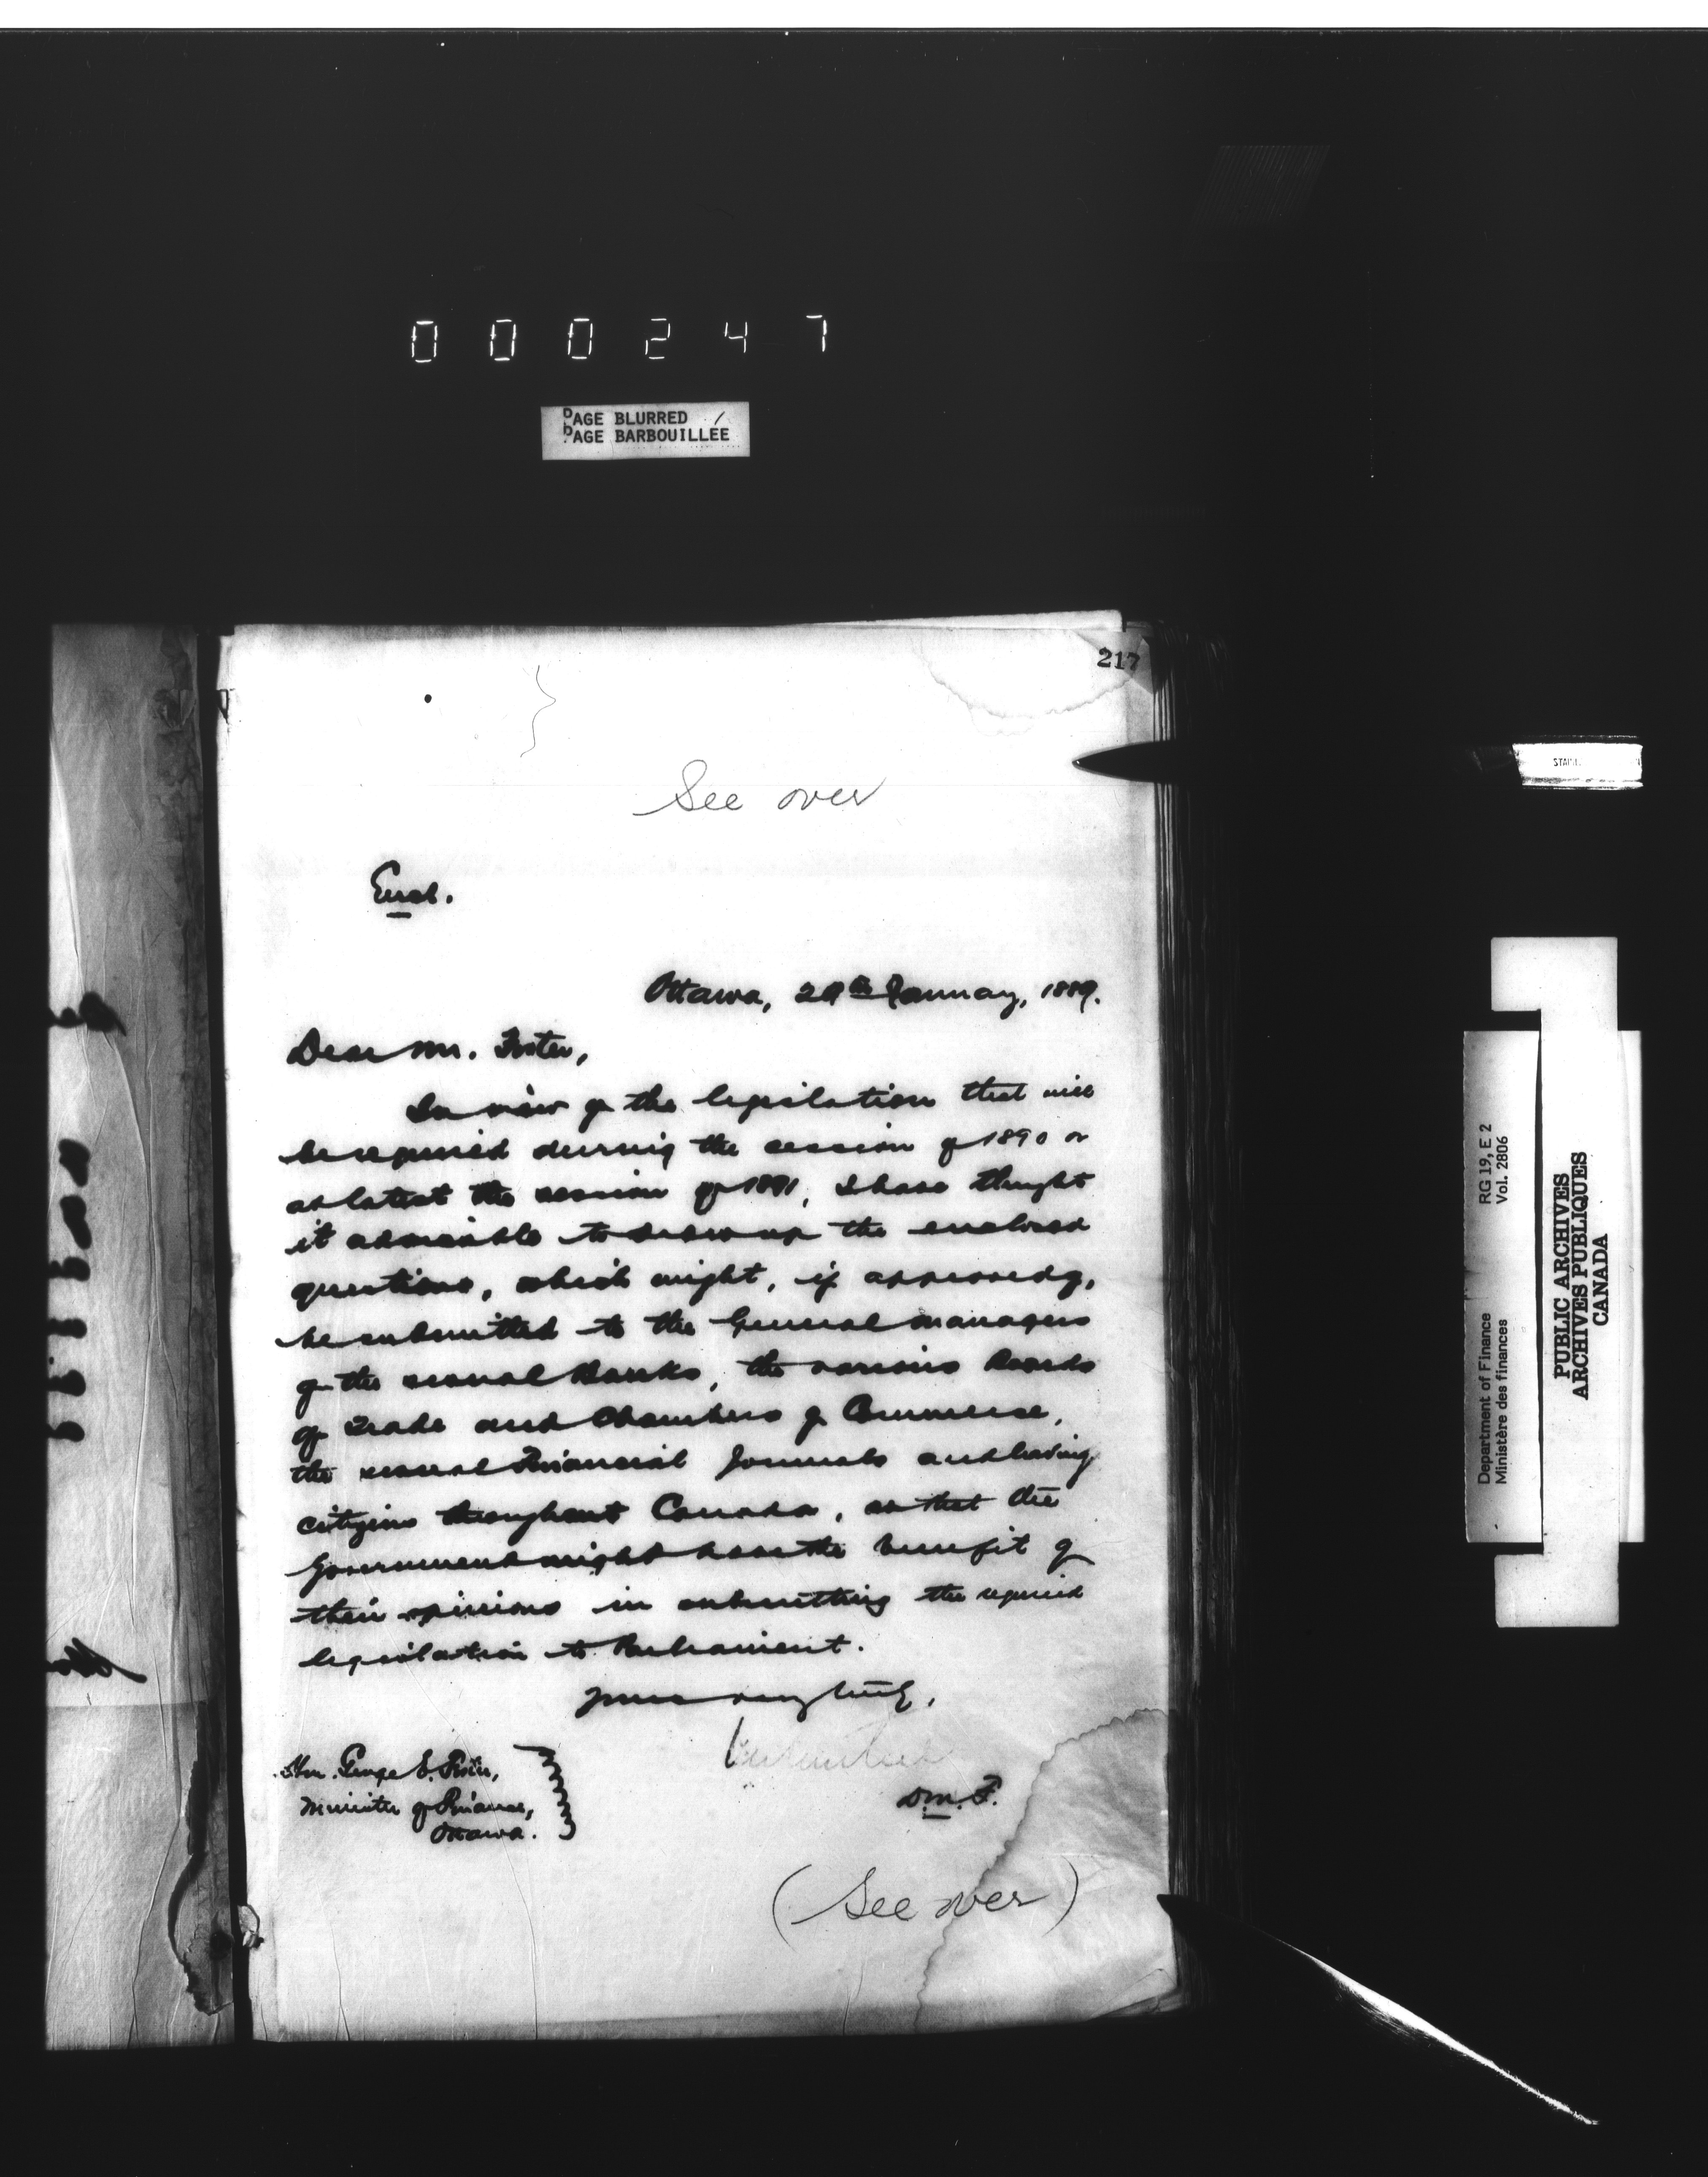 000247
PAGE BLURRED
PAGE BARBOUILLÉE
217
See over
Encl.
Ottawa, 29th January, 1889.
Dear Mr. Foster,
In view of the legislation that will
be required during the session of 1890 or
at latest the session of 1891, I have thought
it advisable to draw up the enclosed
questions, which might, if approved of,
be submitted to the General Managers
of the several Banks, the various Boards
of Trade and Chambers of Commerce,
the several Financial Journals and leading
citizens throughout Canada, so that the
Government might have the benefit of
their opinions in submitting the required
legislation to Parliament.
Yours very truly,
D.M.F.
Hon. George E. Foster,
Minister of Finance,
Ottawa.
(See over)
Department of Finance RG 19, E 2
Ministère des finances Vol. 2806
PUBLIC ARCHIVES
ARCHIVES PUBLIQUES
CANADA